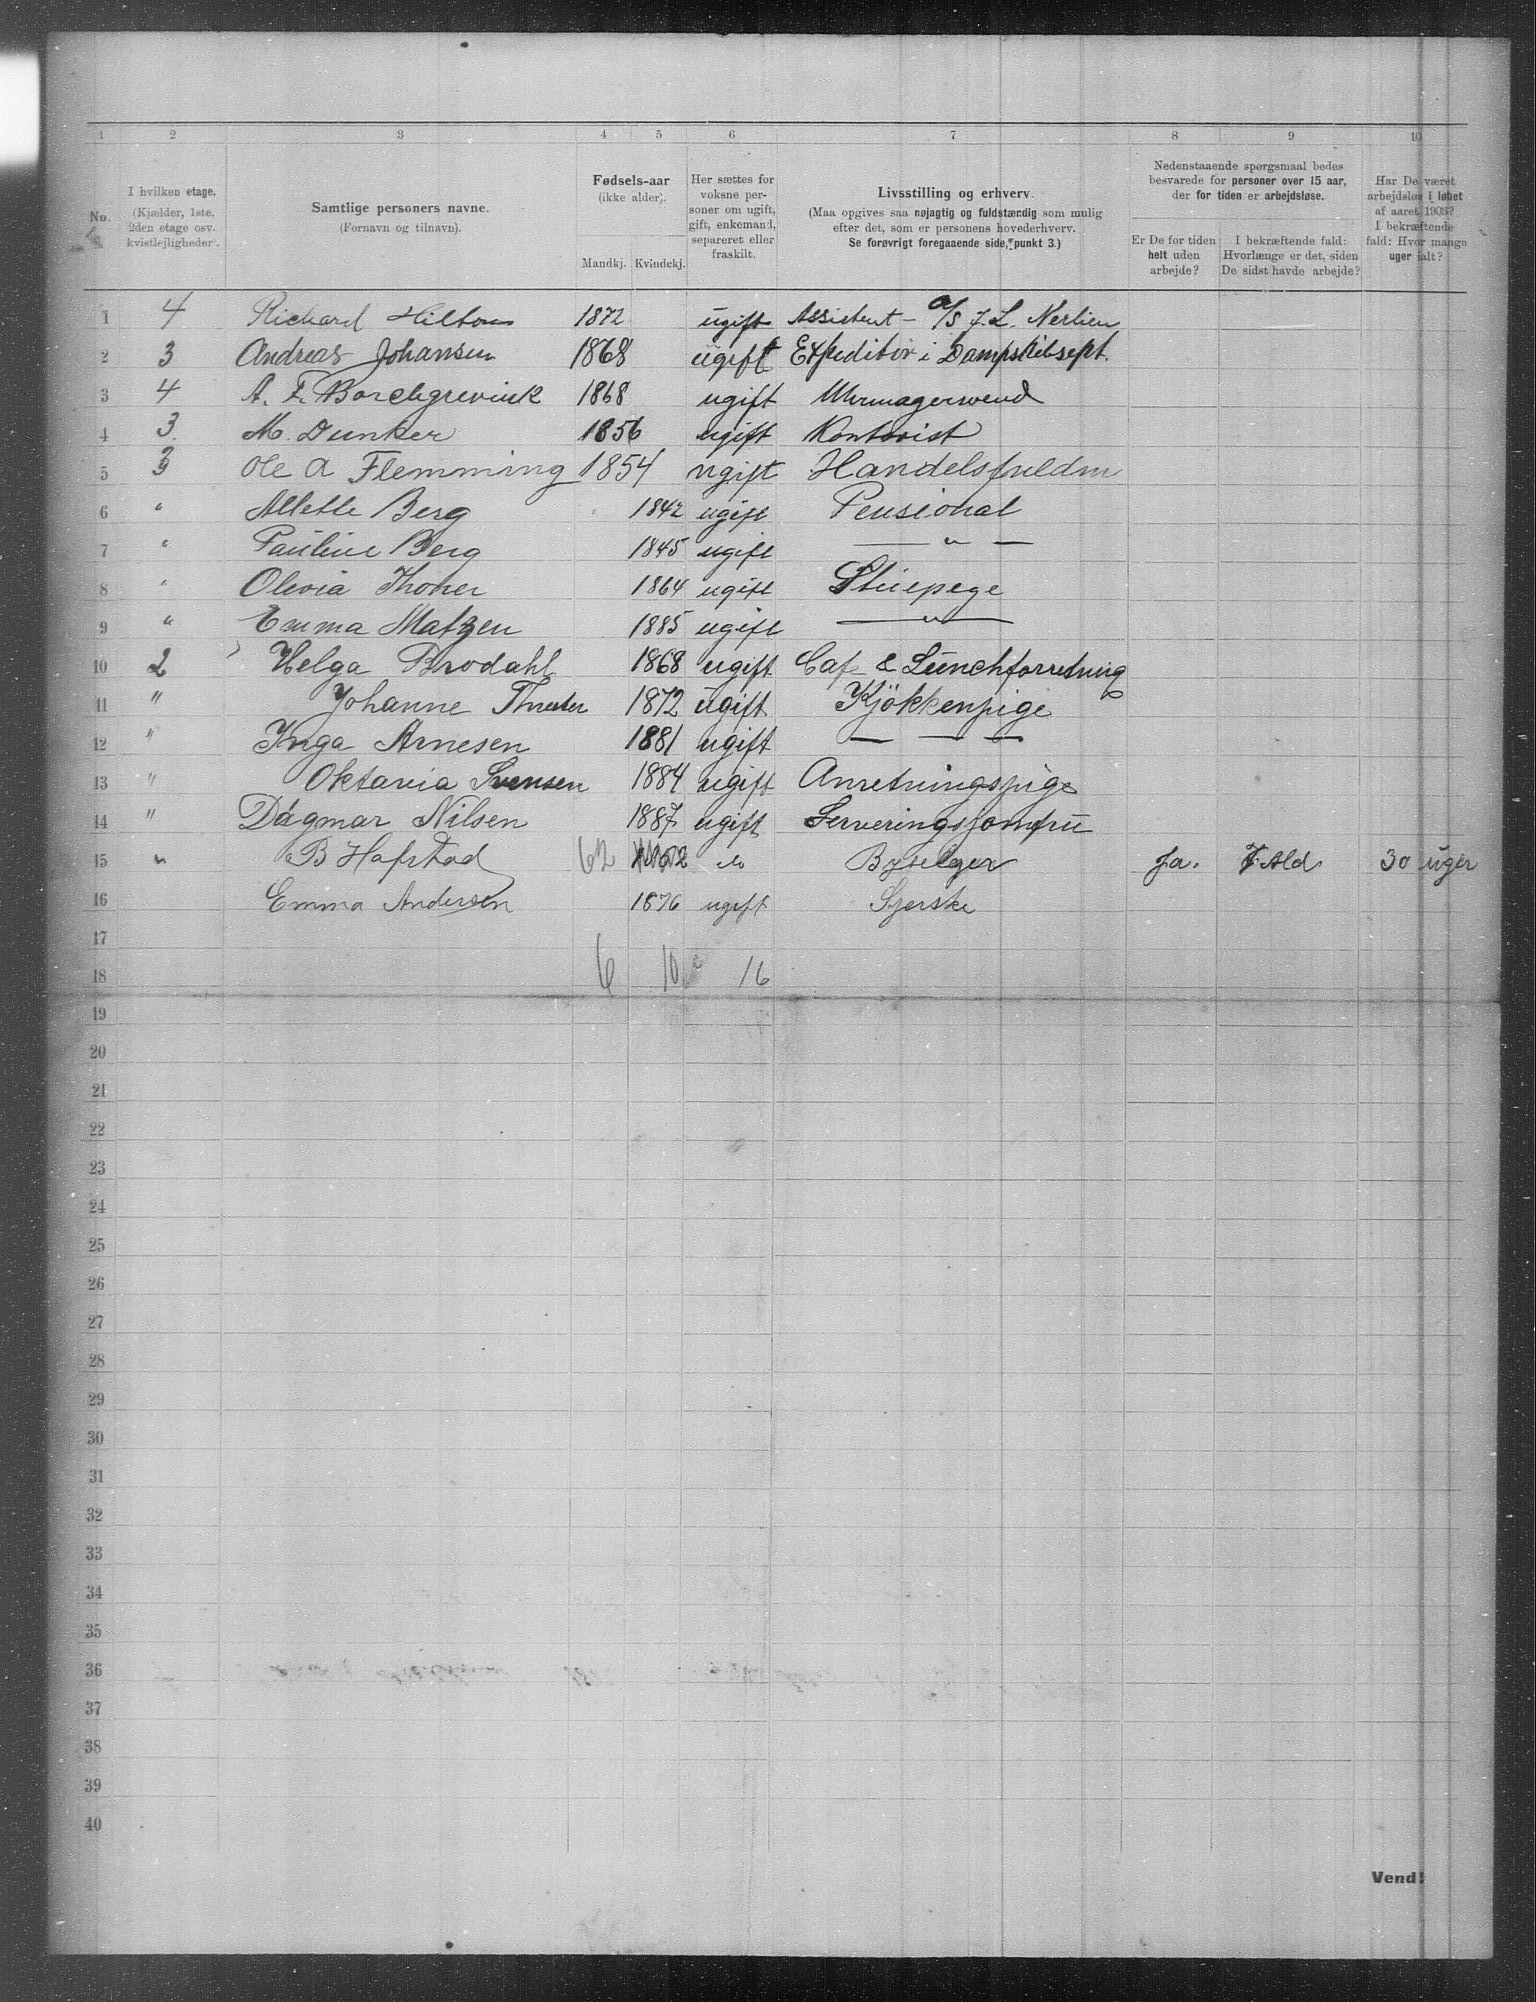 1 2 3 4 5 6 7 8 9 10
No.
I hvilken etage.
(Kjælder, 1ste,
2den etage osv.
kvistleiligheder).
Samtlige personers navne.
(Fornavn og tilnavn).
Fødsels-aar
(ikke alder).
Mandkj. Kvindekj.
Her sættes for
voksne per-
soner om ugift,
gift, enkemand,
separeret eller
fraskilt.
Livsstilling og erhverv.
(Maa opgives saa nøjagtig og fuldstændig som mulig
efter det, som er personens hovederhverv.
Se forøvrigt foregaaende side, punkt 3.)
Nedenstaaende spørgsmaal bedes
besvarede for personer over 15 aar,
der for tiden er arbejdsløse.
Er De for tiden
helt uden
arbejde?
I bekræftende fald:
Hvorlænge er det, siden
De sidst havde arbejde?
Har De været
arbejdsløs i løbet
af aaret 1903?
I bekræftende
fald: Hvor mange
uger ialt?
1 4 Richard Hilton 1872 ugift Assistent - A/S J. L. Nerlien
2 3 Andreas Johansen 1868 ugift Expeditör i Dampskibsexp.
3 4 A. F. Borchgrevink 1868 ugift Uhrmagersvend
4 3. M. Dunker 1856 ugift Kontorist
5 3 Ole A Flemming 1854 ugift Handelsfuldm
6 " Allette Berg 1842 ugift Pensionat
7 " Pauline Berg 1845 ugift — " —
8 " Olevia Thoner 1864 ugift Stuepege
9 " Emma Matzen 1885 ugift — " —
10 2 Helga Brodahl 1868 ugift Caf & Lunchforretning
11 " Johanne 1872 ugift Kjökkenpige
12 " Inga Arnesen 1881 ugift — — —
13 " Oktavia Svensen 1884 ugift Anretningspige
14 " Dagmar Nilsen 1887 ugift Serveringsjomfru
15 " B Hafstad 62 do Bzselger Ja. 30 uger
16 Emma Andersen 1876 ugift Syerske
17
18 6 10 16
19
20
21
22
23
24
25
26
27
28
29
30
31
32
33
34
35
36
37
38
39
40
Vend!